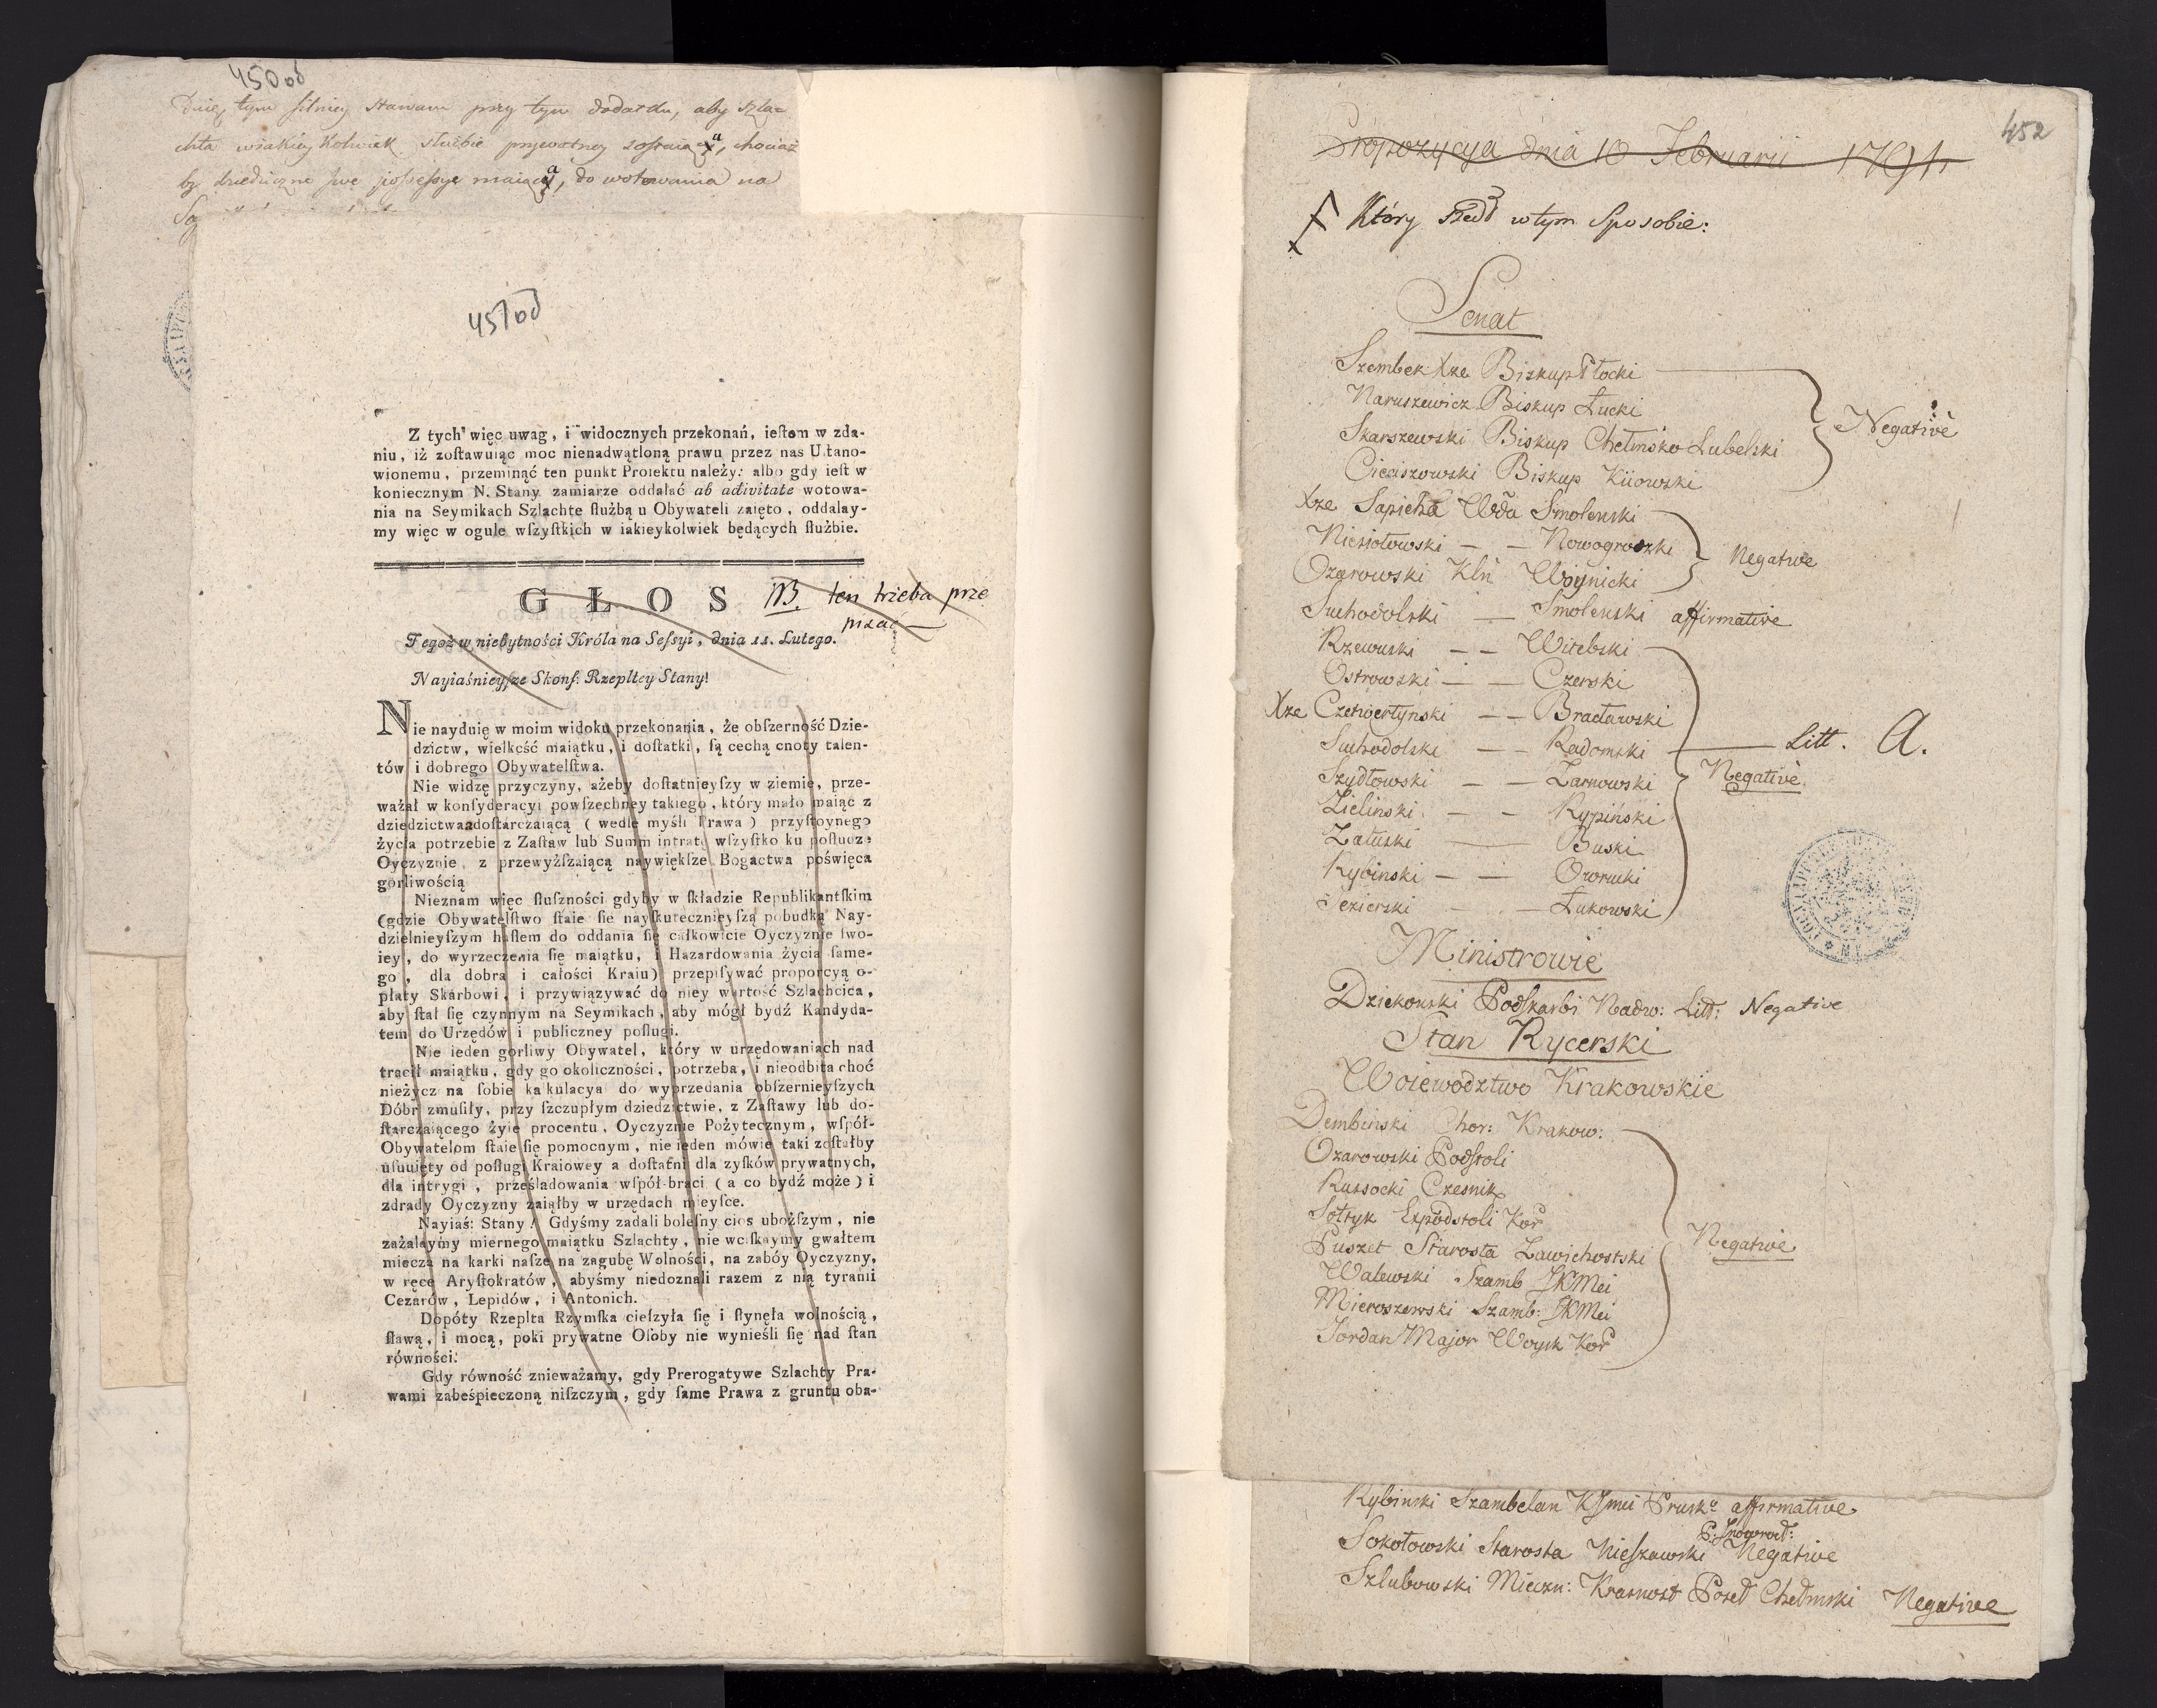 450 od
tym silniey stawam przy tym dodatku, aby szla-
chta w iakieykolwiek służbie prywatney zostaiąca, chociaż
by dziedziczne swe possessye maiąca, do wotowania na
451 od
Z tych więc uwag, i widocznych przekonań, ieſtem w zda-
niu, iż zoſtawuiąc moc nienadwątloną prawu przez nas Uſtano-
wionemu, przeminąć ten punkt Proiektu należy: albo gdy ieſt w
koniecznym N. Stany zamiarze oddalać ab activitate wotowa-
nia na Seymikach Szlachtę ſłużbą u Obywateli zaięto, oddalay-
my więc w ogule wſzyſtkich w iakieykolwiek będących ſłużbie.
GŁOS NB. ten trzeba prze
pisać
Tegoż w niebytności Króla na Seſsyi, dnia 11. Lutego.
Nayiaśnieyſze Skonf: Rzepltey Stany!
Nie nayduię w moim widoku przekonania, że obſzerność Dzie-
dzictw, wielkość maiątku, i doſtatki, ſą cechą cnoty talen-
tów i dobrego Obywatelſtwa.
Nie widzę przyczyny, ażeby doſtatnieyſzy w ziemię, prze-
ważał w konſyderacyi powſzechney takiego, który mało maiąc z
dziedzictwa a doſtarczaiącą (wedle myśli Prawa) przyſtoynego
życia potrzebie z Zaſtaw lub Summ intratę wſzyſtko ku poſłudze
Oyczyznie, z przewyżſzaiącą naywiękſze Bogactwa poświęca
gorliwością
Nieznam więc ſłuſzności gdyby w ſkładzie Republikantſkim
(gdzie Obywatelſtwo ſtaie ſie nayſkutecznieyſzą pobudką Nay-
dzielnieyſzym haſłem do oddania ſię całkowicie Oyczyznie ſwo-
iey, do wyrzeczenia ſię maiątku, i Hazardowania życia ſame-
go, dla dobra i całości Kraiu) przepiſywać proporcyą o-
płaty Skarbowi, i przywiązywać do niey wartość Szlachcica,
aby ſtał ſię czynnym na Seymikach, aby mógł bydź Kandyda-
tem do Urzędów i publiczney poſługi.
Nie ieden gorliwy Obywatel, który w urzędowaniach nad
tracił maiątku, gdy go okoliczności, potrzeba, i nieodbita choć
nieżycz na ſobie kalkulacya do wyprzedania obſzernieyſzych
Dóbr zmuſiły, przy ſzczupłym dziedzictwie, z Zaſtawy lub do-
ſtarczaiącego żyie procentu, Oyczyznie Pożytecznym, wſpół-
Obywatelom ſtaie ſię pomocnym, nie ieden mówię taki zoſtałby
uſunięty od poſługi Kraiowey a doſtatni dla zyſków prywatnych,
dla intrygi, prześladowania wſpół-braci (a co bydź może) i
zdrady Oyczyzny zaiąłby w urzędach mieyſce.
Nayiaś: Stany! Gdyśmy zadali boleſny cios uboższym, nie
zażalaymy miernego maiątku Szlachty, nie wciſkaymy gwałtem
miecza na karki naſze na zagubę Wolności, na zabóy Oyczyzny,
w ręce Aryſtokratów, abyśmy niedoznali razem z nią tyranii
Cezarów, Lepidów, i Antonich.
Dopóty Rzeplta Rzymſka cieſzyła ſię i ſłynęła wolnością,
ſławą, i mocą, poki prywatne Oſoby nie wynieśli ſię nad ſtan
równości.
Gdy równość znieważamy, gdy Prerogatywę Szlachty Pra-
wami zabeśpieczoną niſzczym, gdy ſame Prawa z gruntu oba-
452
Propozycya dnia 10 Februarii 1791.
Który szedł w tym Sposobie:
Senat
Szembek Xże Biskup Płocki
Naruszewicz Biskup Łucki
Negative
Skarszewski Biskup Chełmsko Lubelski
Cieciszowski Biskup Kiiowski
Xże Sapieha Wda Smolenski
Niesiołowski — — Nowogrodzki
Negative
Ożarowski Kłn Woynicki
Suchodolski — Smolenski affirmative
Rzewuski — — Witebski
Ostrowski — — Czerski
Xże Czetwertynski — — Bracławski
Suchodolski — — Radomski
Litt. A.
Szydłowski — — Żarnowski
Negative
Zielinski — — Rypiński
Załuski — Buski
Rybinski — — Owrucki
Jezierski — — Łukowski
Ministrowie
Dziekonski Podskarbi Nadw: Litt: Negative
Stan Rycerski
Woiewodztwo Krakowskie
Dembinski Chor: Krakow:
Ożarowski Podstoli
Russocki Czesnik
Sołtyk Expodstoli Kor
Puszet Starosta Zawichostski
Negative
Walewski Szamb JKMci
Mieroszewski Szamb: JKMci
Jordan Major Woysk Kor
Rybinski Szambelan KJmci Prusk: affirmative
Sokołowski Starosta Nieszawski P: Inowrocł: Negative
Szlubowski Mieczn: Krasnost Poseł Chełmski Negative